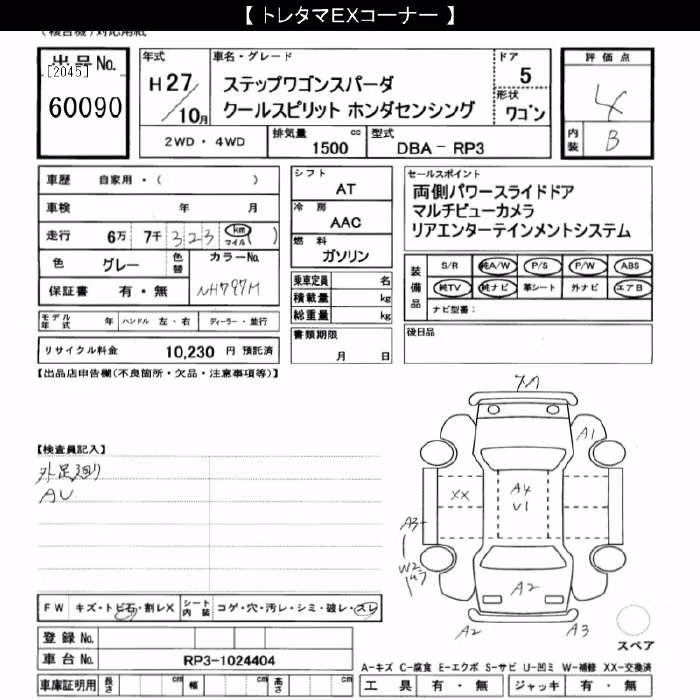 【 トレタマEXコーナー 】
(複合機)対応用紙
出品No.
[2045]
60090
年式
H 27/10月
車名・グレード
ステップワゴンスパーダ
クールスピリット ホンダセンシング
ドア
5
形状
ワゴン
評価点
4
内装 B
2WD・4WD
排気量 1500 cc
型式 DBA - RP3
車歴 自家用・( )
車検 年 月
走行 6万 7千 323 km マイル ( )
色 グレー 色替 カラーNo.
保証書 有・無 NH797M
シフト
AT
冷房
AAC
燃料
ガソリン
乗車定員 名
積載量 kg
総重量 kg
セールスポイント
両側パワースライドドア
マルチビューカメラ
リアエンターテインメントシステム
装備品
S/R 純A/W P/S P/W ABS
純TV 純ナビ 革シート 外ナビ エアB
ナビ型番:
モデル年式 年 ハンドル 左・右 ディーラー・並行
リサイクル料金 10,230 円 預託済
書類期限
月 日
後日品
【出品店申告欄(不良箇所・欠品・注意事項等)】
【検査員記入】
外足廻り
AU
A1
XX
A4
V1
A3
W2
A2
A2
A3
スペア
FW キズ・トビ石・割レX シート内装 コゲ・穴・汚レ・シミ・破レ・スレ
登録No.
車台No. RP3-1024404
車庫証明用 長さ cm 幅 cm 高さ cm
A-キズ C-腐食 E-エクボ S-サビ U-凹ミ W-補修 XX-交換済
工具 有・無 ジャッキ 有・無